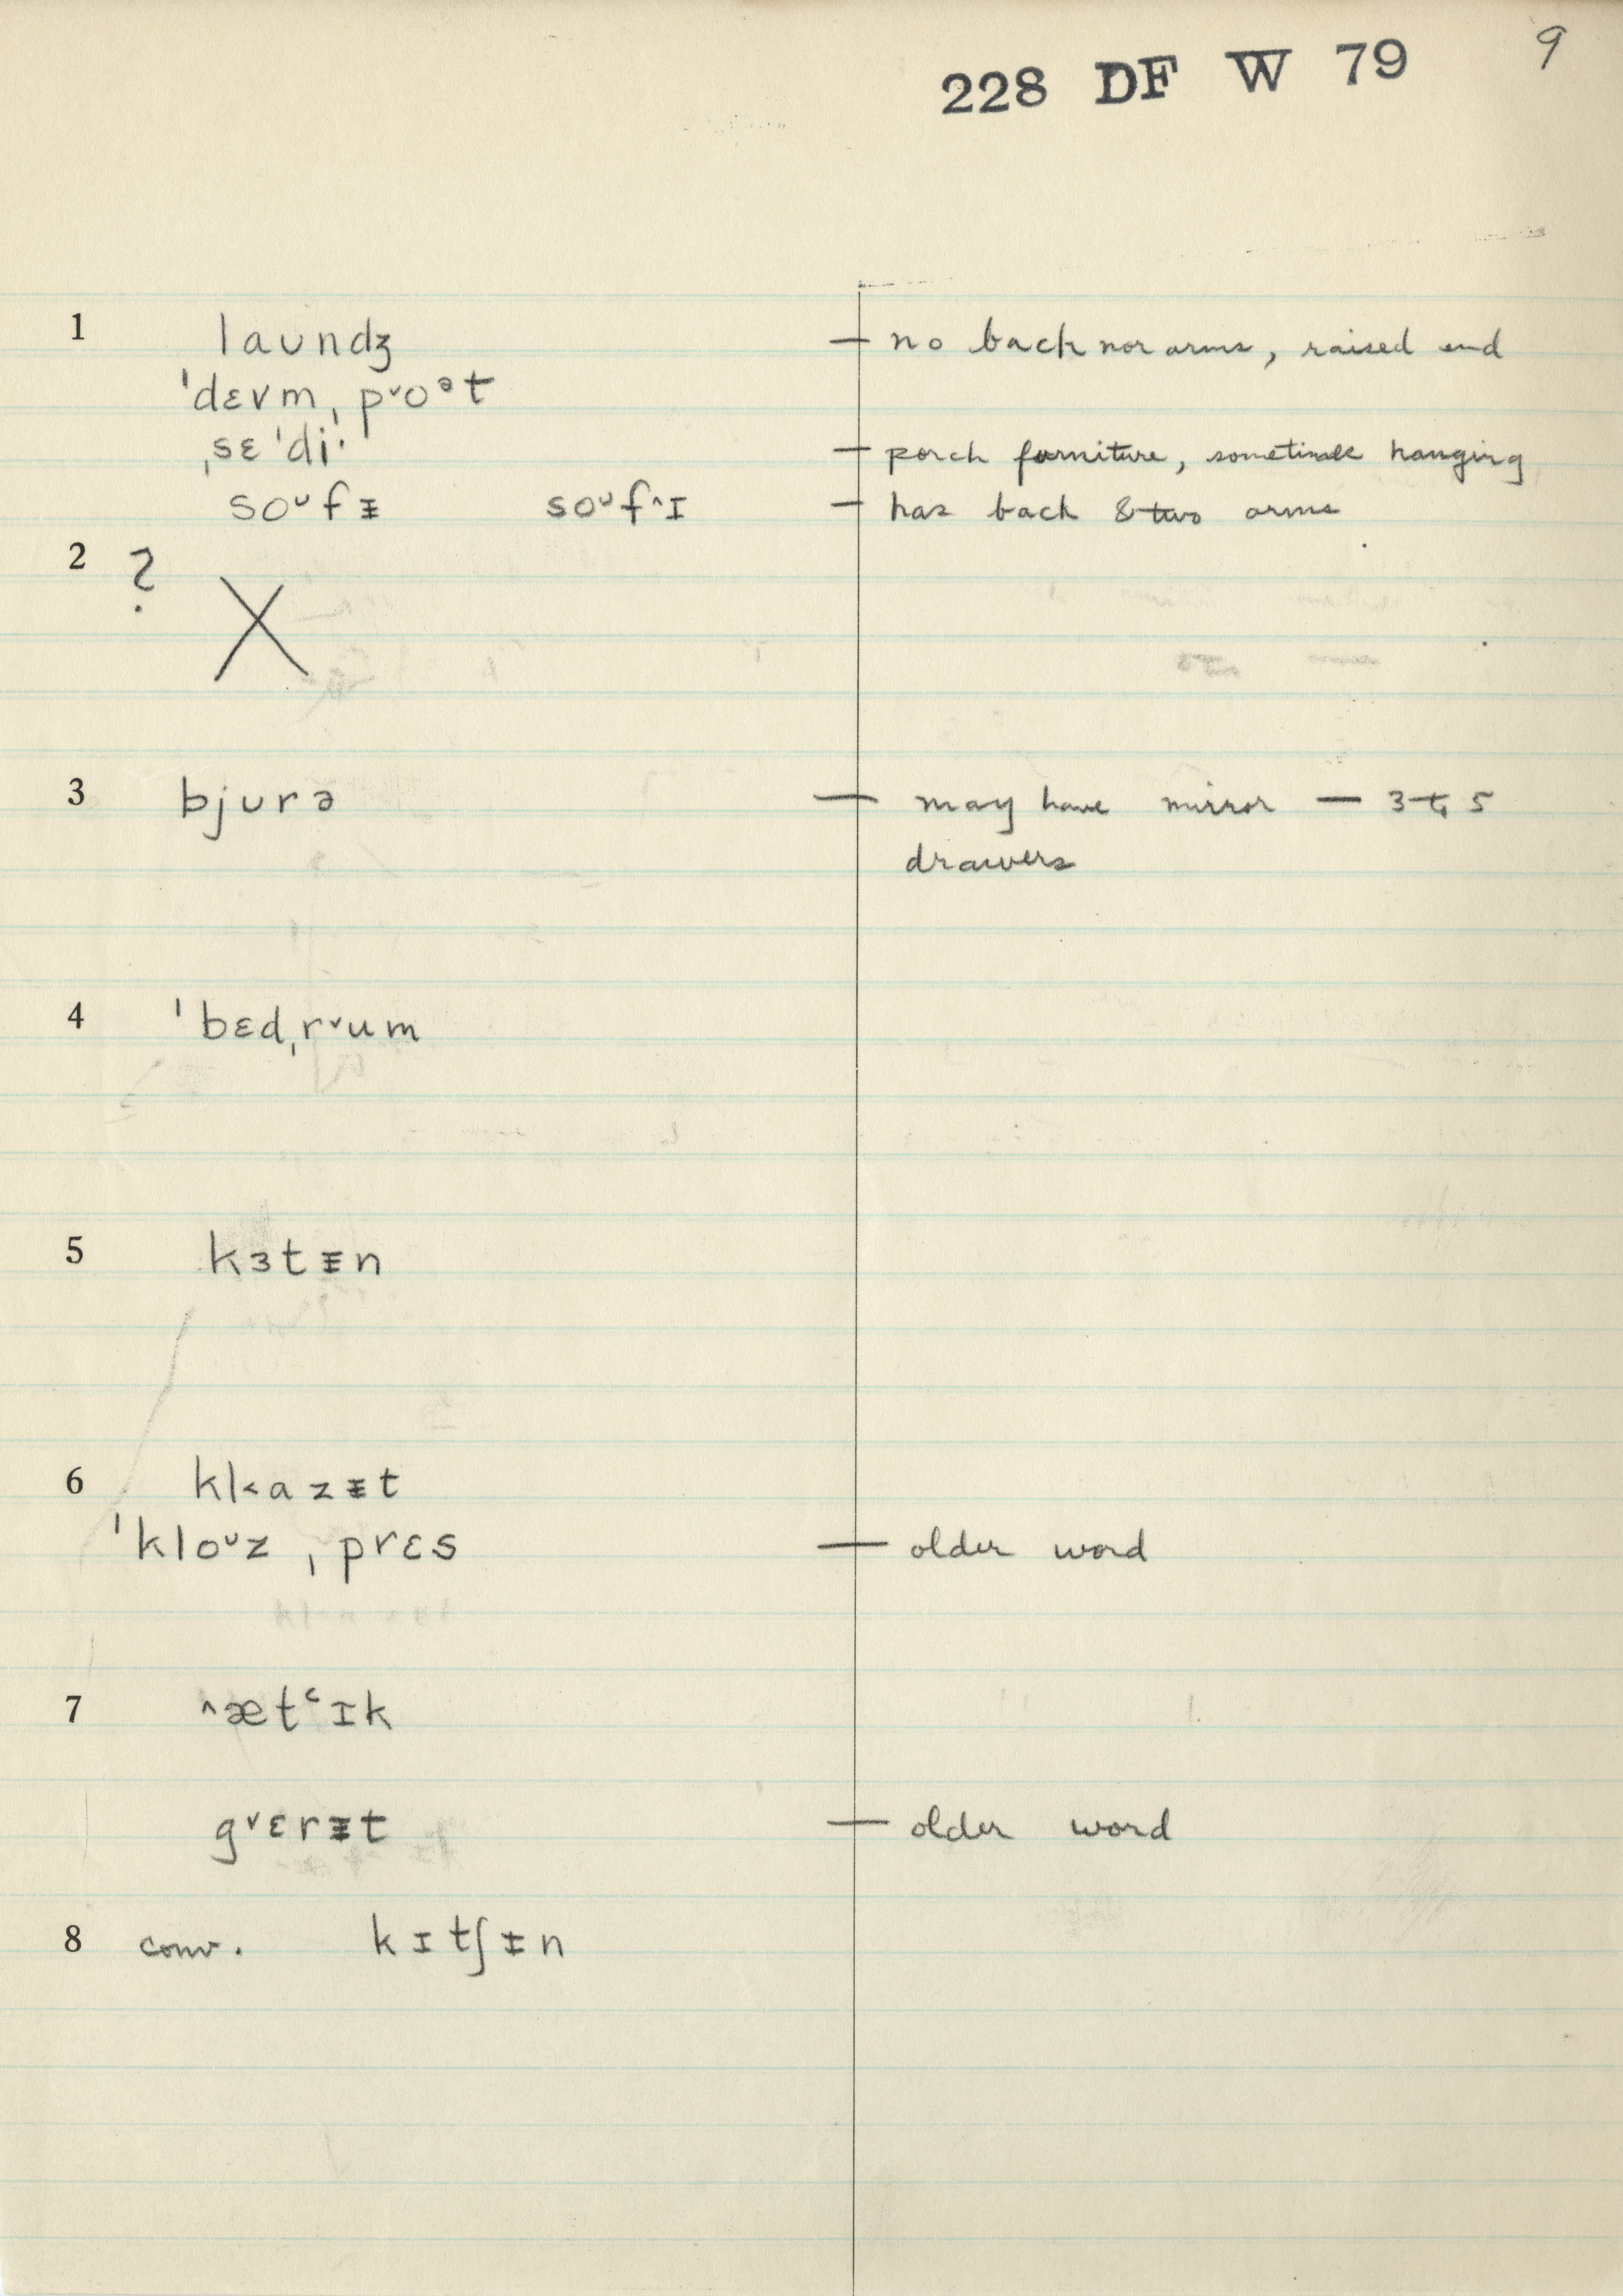 228 DF W 79 9
1 laundʒ — no back nor arms, raised end
ˈdɛvmˌp˅oᵊt
ˌsɛˈdiˑ — porch furniture, sometimes hanging
soᶸfᵻ soᶸf˄ɪ — has back & two arms
2 ? X
3 bjurə — may have mirror — 3 to 5
drawers
4 ˈbɛdˌr˅um
5 kɜtᵻn
6 kl˂ɑzᵻt
ˈkloᶸzˌprɛs — older word
7 ˄ætʿɪk
g˅ɛrᵻt — older word
8 conv. kɪtʃᵻn